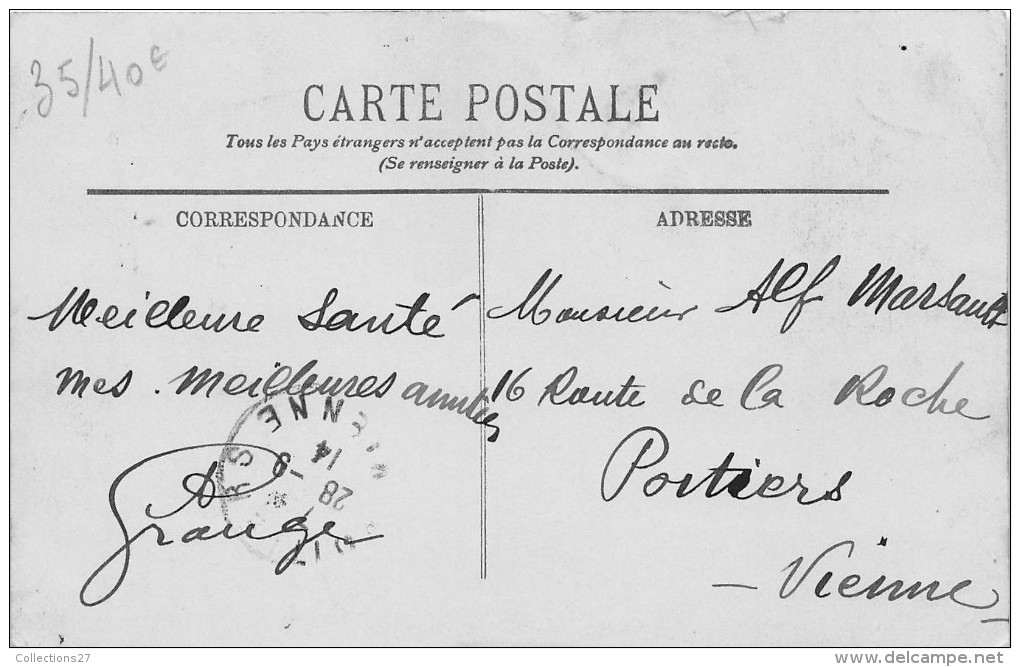 35/40€
CARTE POSTALE
Tous les Pays étrangers n'acceptent pas la Correspondance au recto.
(Se renseigner à la Poste).
CORRESPONDANCE
Meilleure Santé
mes. meilleures amitiés
A Grange
ADRESSE
Monsieur Alf Marsault
16 Route de la Roche
Poitiers
- Vienne -
VIENNE
14
28
Collections27
www.delcampe.net